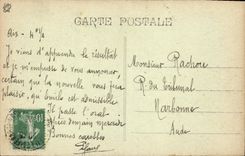 CARTE POSTALE
Je viens d'apprendre le résultat
et je m'empresse de vous annoncer,
certain que la nouvelle vous fera
plaisir, qu'Emile est admissible
Il passe l'oral
demain mercredi
Bonnes amitiés
Monsieur
R. du Tribunal
Narbonne
Aude